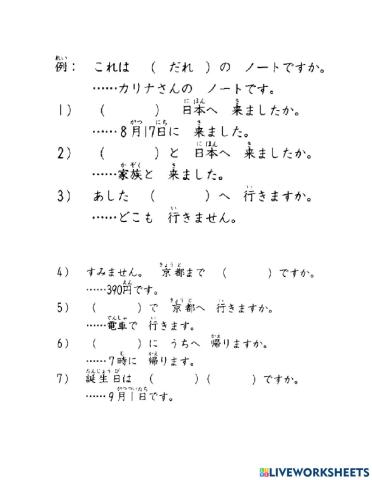 例： これは （ だれ ）の ノートですか。
……カリナさんの ノートです。
1） （ ） 日本へ 来ましたか。
……8月17日に 来ました。
2） （ ）と 日本へ 来ましたか。
……家族と 来ました。
3） あした （ ）へ 行きますか。
……どこも 行きません。
4） すみません。 京都まで （ ）ですか。
……390円です。
5） （ ）で 京都へ 行きますか。
……電車で 行きます。
6） （ ）に うちへ 帰りますか。
……7時に 帰ります。
7） 誕生日は （ ）（ ）ですか。
……9月1日です。
LIVEWORKSHEETS